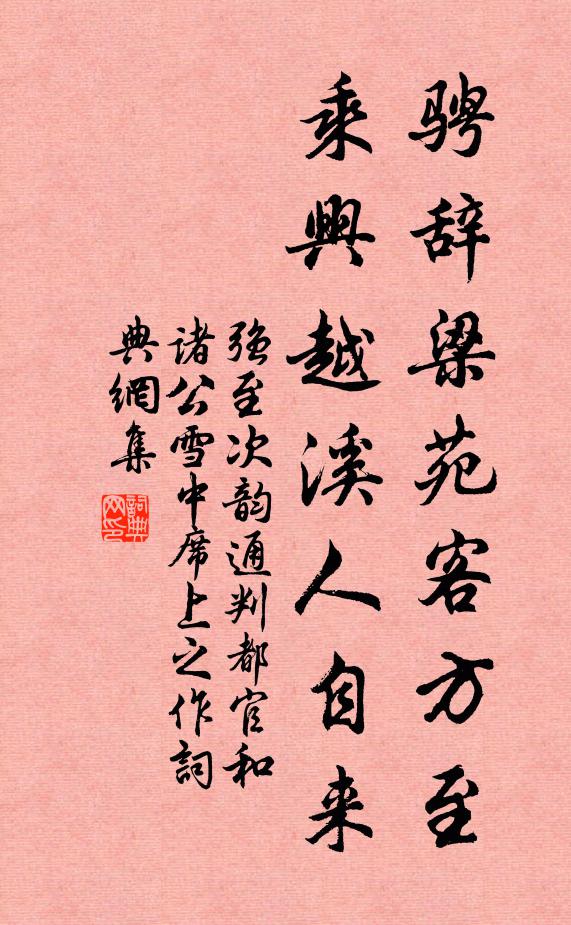 骋辞梁苑客方至
乘興越溪人自来
强至次韵通判都官和
諸公雪中席上之作詞
典網集
詞典网印